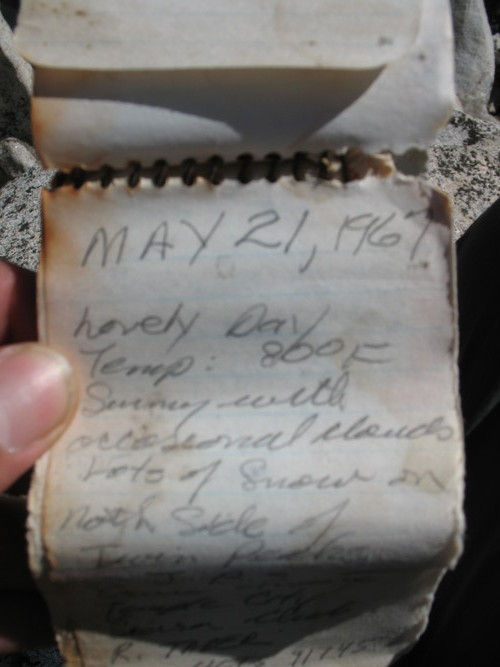 MAY 21, 1967
Lovely Day
Temp: 80°F
Sunny with
occasional clouds
Lots of Snow on
North Side of
Twin Peaks
Temple City
R.